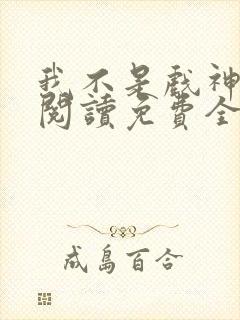 我不是戲神
閱讀免費全
成島百合